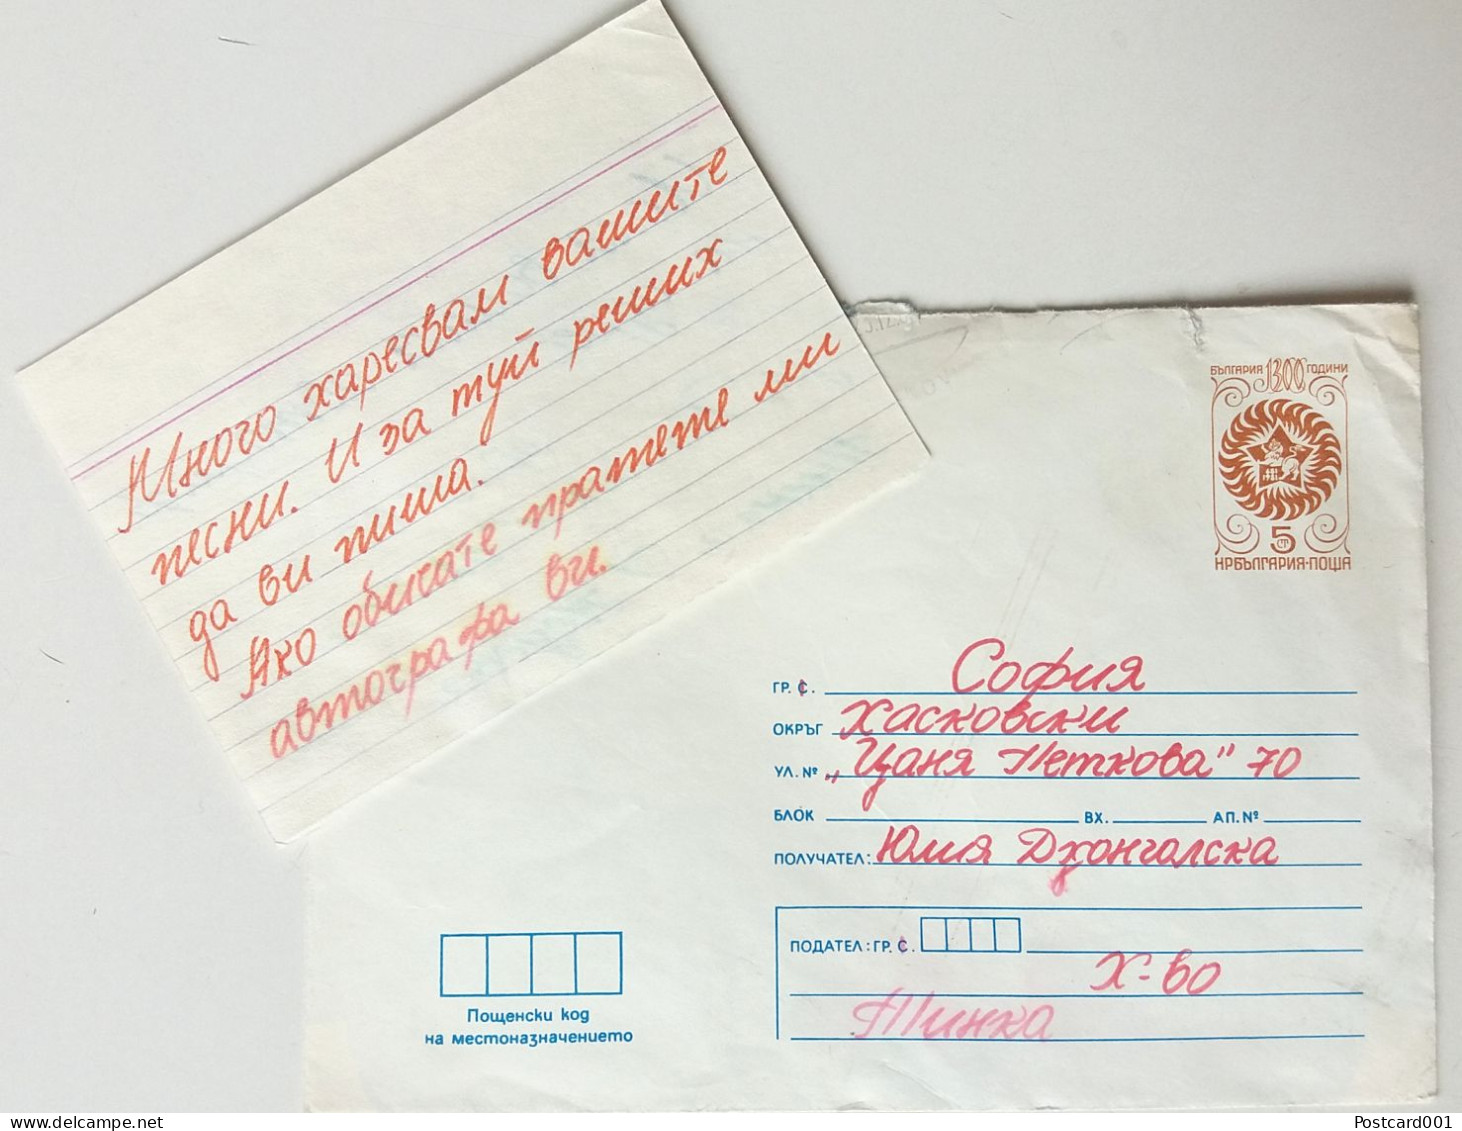 Много харесвам вашите
песни. И за туй реших
да ви пиша.
Ако обичате пратете ми
автографа ви.
БЪЛГАРИЯ 1300 ГОДИНИ
5 СТ
НРБЪЛГАРИЯ·ПОЩА
ГР. С. София
ОКРЪГ Хасковски
УЛ. № „Цаня Петкова" 70
БЛОК ВХ. АП. №
ПОЛУЧАТЕЛ: Юлия Джонголска
ПОДАТЕЛ: ГР. С.
Х-во
Тинка
Пощенски код
на местоназначението
Postcard001